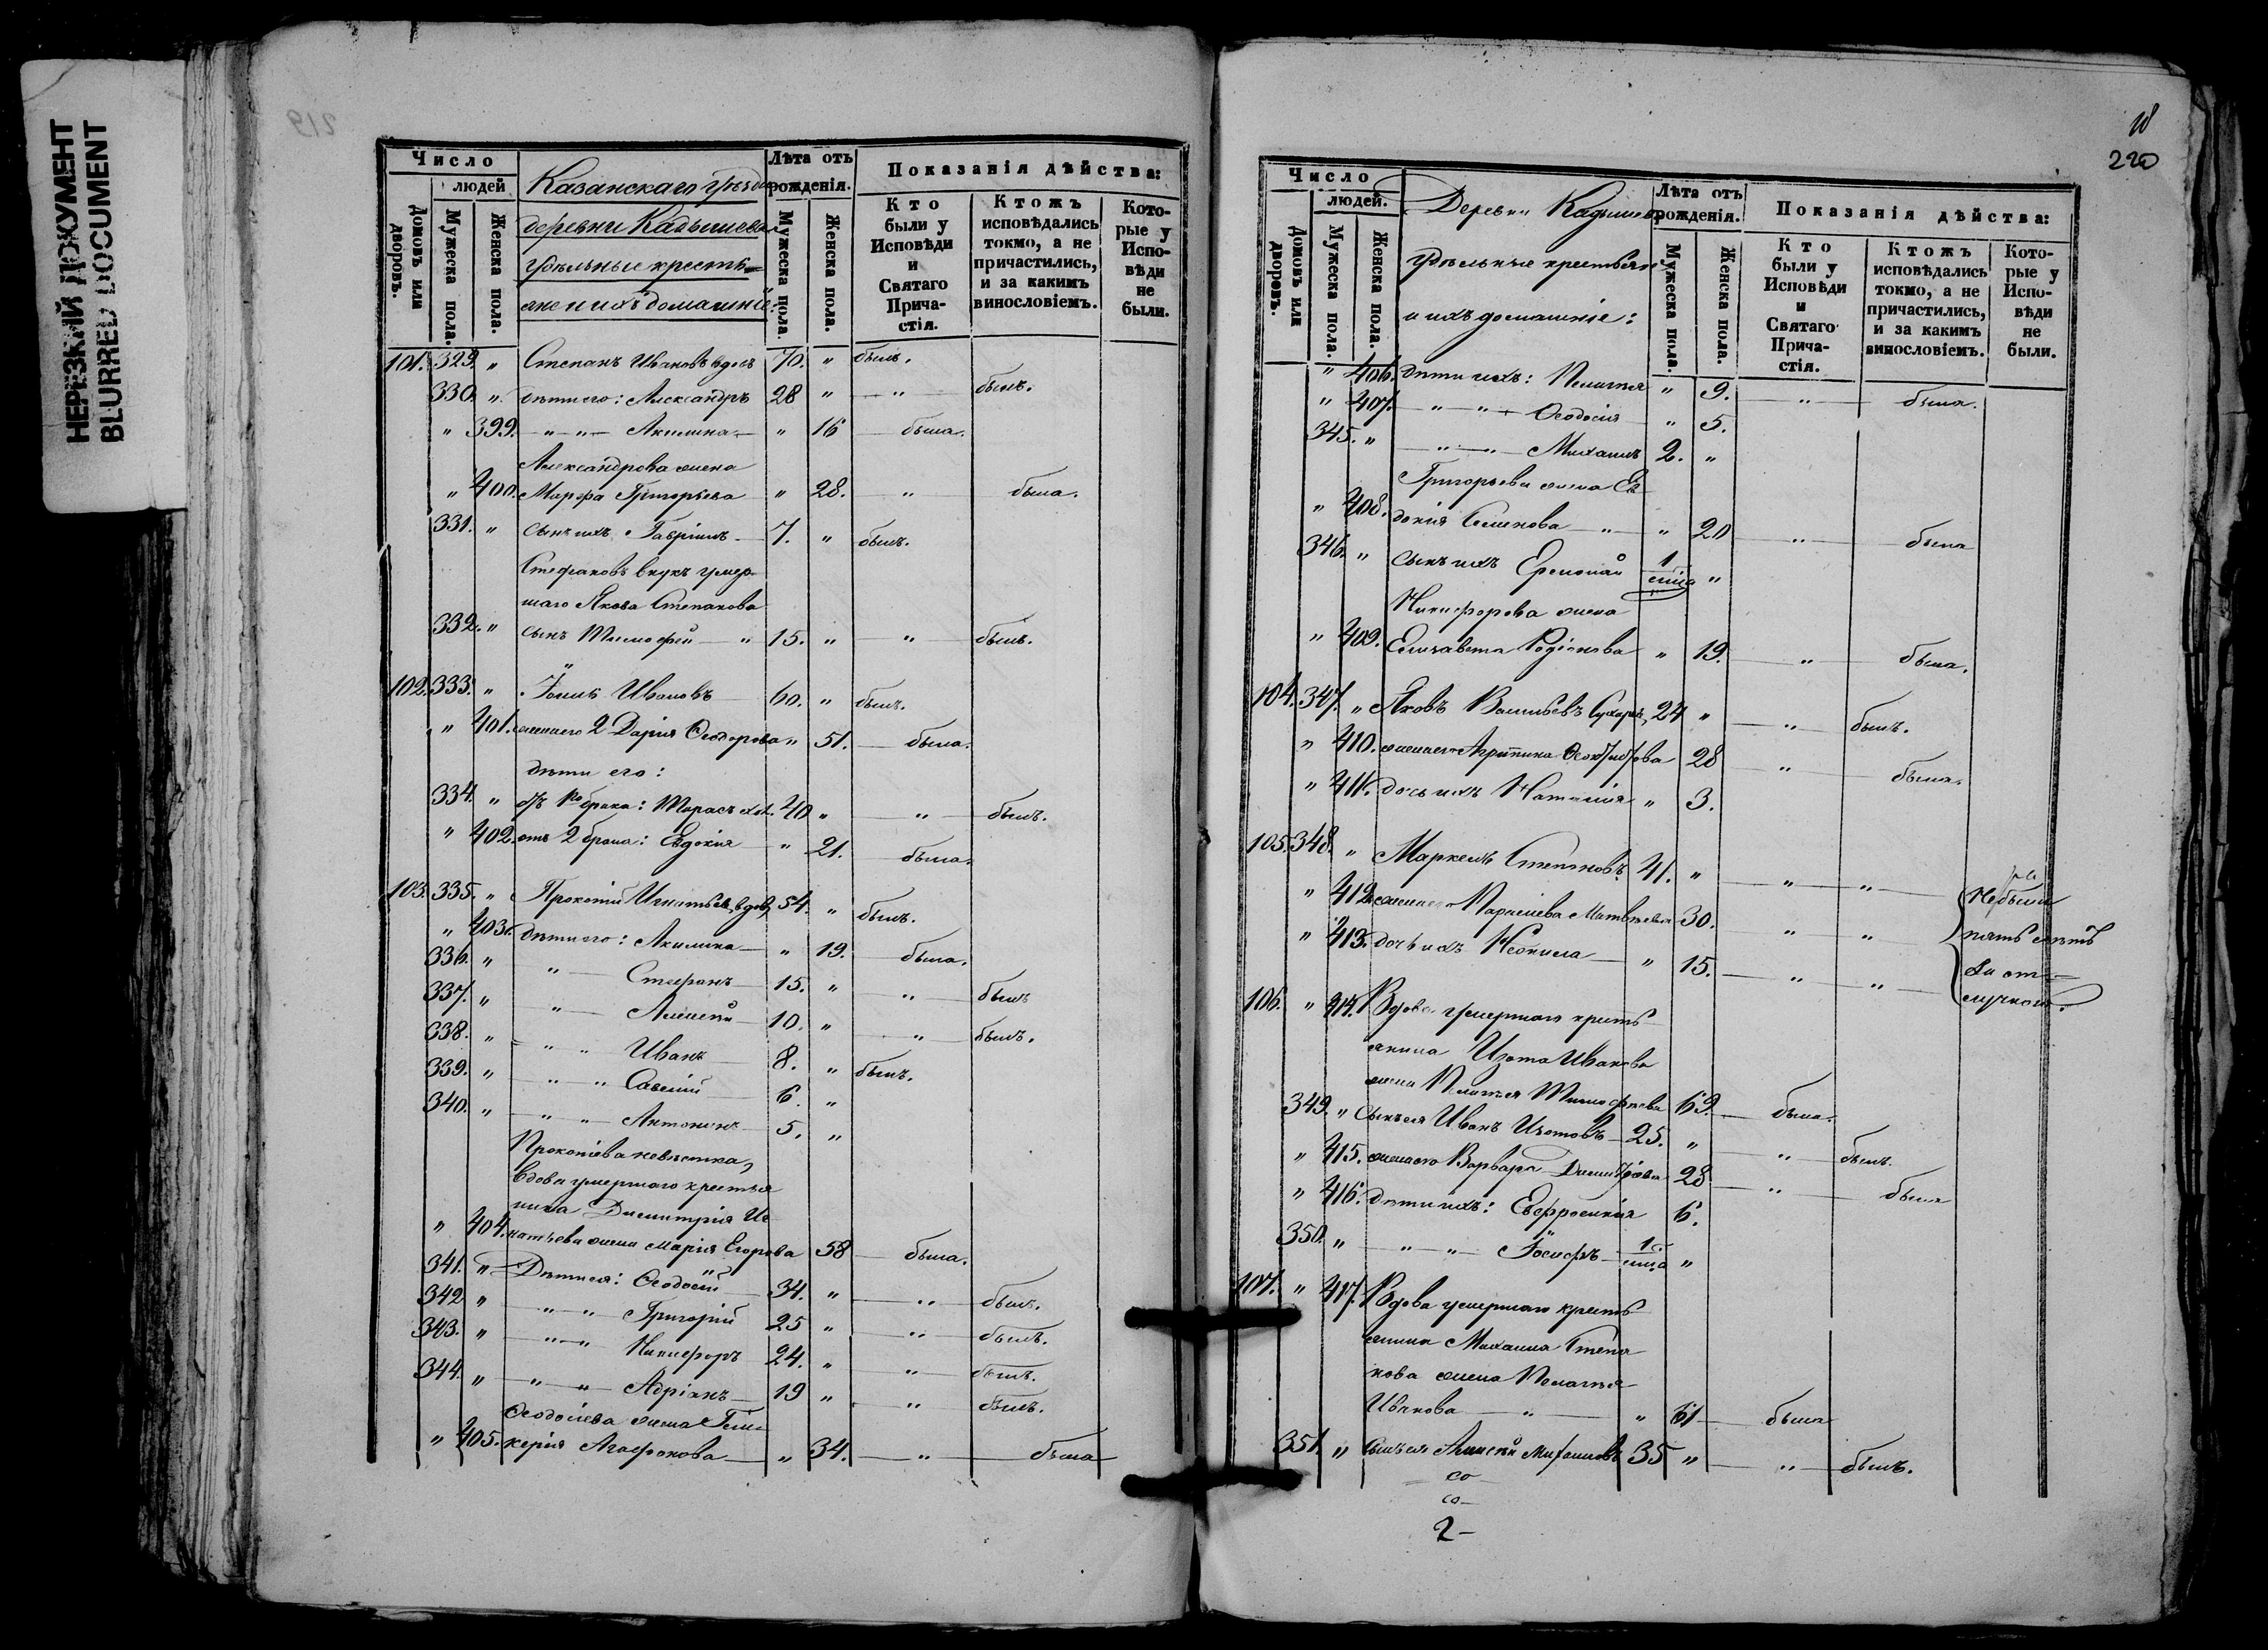 НЕРЕЗКИЙ ДОКУМЕНТ
BLURRED DOCUMENT
219
Число
людей
Домовъ или дворовъ.
Мужеска пола.
Женска пола.
Казанскаго Уѣзда
деревни Кадышева
удѣльные кресть-
яне и ихъ домашніе:
Лѣта отъ рожденія.
Мужеска пола.
Женска пола.
Показанія дѣйства:
Кто были у Исповѣди и Святаго Прича-стія.
Ктожъ исповѣдались токмо, а не причастились, и за какимъ винословіемъ.
Кото-рые у Испо-вѣди не были.
101. 329. " Степанъ Ивановъ вдовъ 70. " былъ.
330. " дѣти его: Александръ 28 " " былъ.
" 399. " " Акилина " 16 была.
Александрова жена
" 400. Марфа Григорьева " 28. " была.
331. " сынъ ихъ Гавріилъ 7. " былъ.
Стефановъ внукъ умер-
шаго Якова Степанова
332. " сынъ Тимофей " 15. " " былъ.
102. 333. " Іоиль Ивановъ 60. " былъ.
" 401. жена его 2 Дарія Ѳеодорова " 51. была.
дѣти его:
334. " отъ 1го брака: Тарасъ хол. 40 " " былъ.
" 402. отъ 2 брака: Евдокія " 21. была.
103. 335. " Прокопій Игнатьевъ, вдов, 54. " былъ.
" 403. дѣти его: Акилина " 19. была.
336. " " Стефанъ 15. " " былъ
337. " " Алексѣй 10. " " былъ.
338. " " " Иванъ 8. " былъ.
339. " " " Савелій 6. "
340. " " " Антонинъ 5. "
Прокопіева невѣстка,
вдова умершаго крестья
нина Димитрія Иг
" 404. натьева жена Марія Егорова 58 была.
341. " Дѣти ея: Ѳеодосій 34. " " былъ.
342 " " " Григорій 25 " " былъ.
343. " " " Никифоръ 24. " " былъ.
344. " " " Адріанъ 19 " " былъ.
Ѳеодосіева жена Гли-
" 405. керія Агафонова " 34. " была
18
220
Число
людей.
Домовъ или дворовъ.
Мужеска пола.
Женска пола.
Деревни Кадышева
удѣльные крестьяне
и ихъ домашніе:
Лѣта отъ рожденія.
Мужеска пола.
Женска пола.
Показанія дѣйства:
Кто были у Исповѣди и Святаго Прича-стія.
Ктожъ исповѣдались токмо, а не причастились, и за какимъ винословіемъ.
Кото-рые у Испо-вѣди не были.
" 406. дѣти ихъ: Пелагея " 9. " была.
" 407. " " Ѳеодосія " 5.
345. " " " Михаилъ 2. "
Григорьева жена Ев
" 408. докія Семенова " " 20 " была
346. " сынъ ихъ Ермолай 1 мѣца "
Никифорова жена
" 409. Елизавета Родіонова " 19. " была.
104. 347. " Яковъ Васильевъ 24 " " былъ.
" 410. жена его Агрипина 28 " была.
" 411. дочь ихъ Наталия " 3.
105. 348. " Маркелъ Степановъ 41. " " " Не были
" 412. жена его Параскева Матвѣева 30. " " пять лѣтъ
" 413. дочь ихъ Неонила " 15. " " за от-
лучкою.
106. " 414. Вдова умершаго кресть
янина Изота Иванова
жена Пелагея Тимофѣева 69. была.
349. " Сынъ ея Иванъ Изотовъ 25. " " былъ.
" 415. жена его Варвара Димитріева 28 " была
" 416. дѣти ихъ: Евфросинія 6.
350. " " " Іосифъ 1 мѣца "
107. " 417. Вдова умершаго кресть
янина Михаила Степа
нова жена Пелагея
Иванова " " 61 была
351. " Сынъ ея Алексѣй Михаиловъ 35 " " былъ.
2-